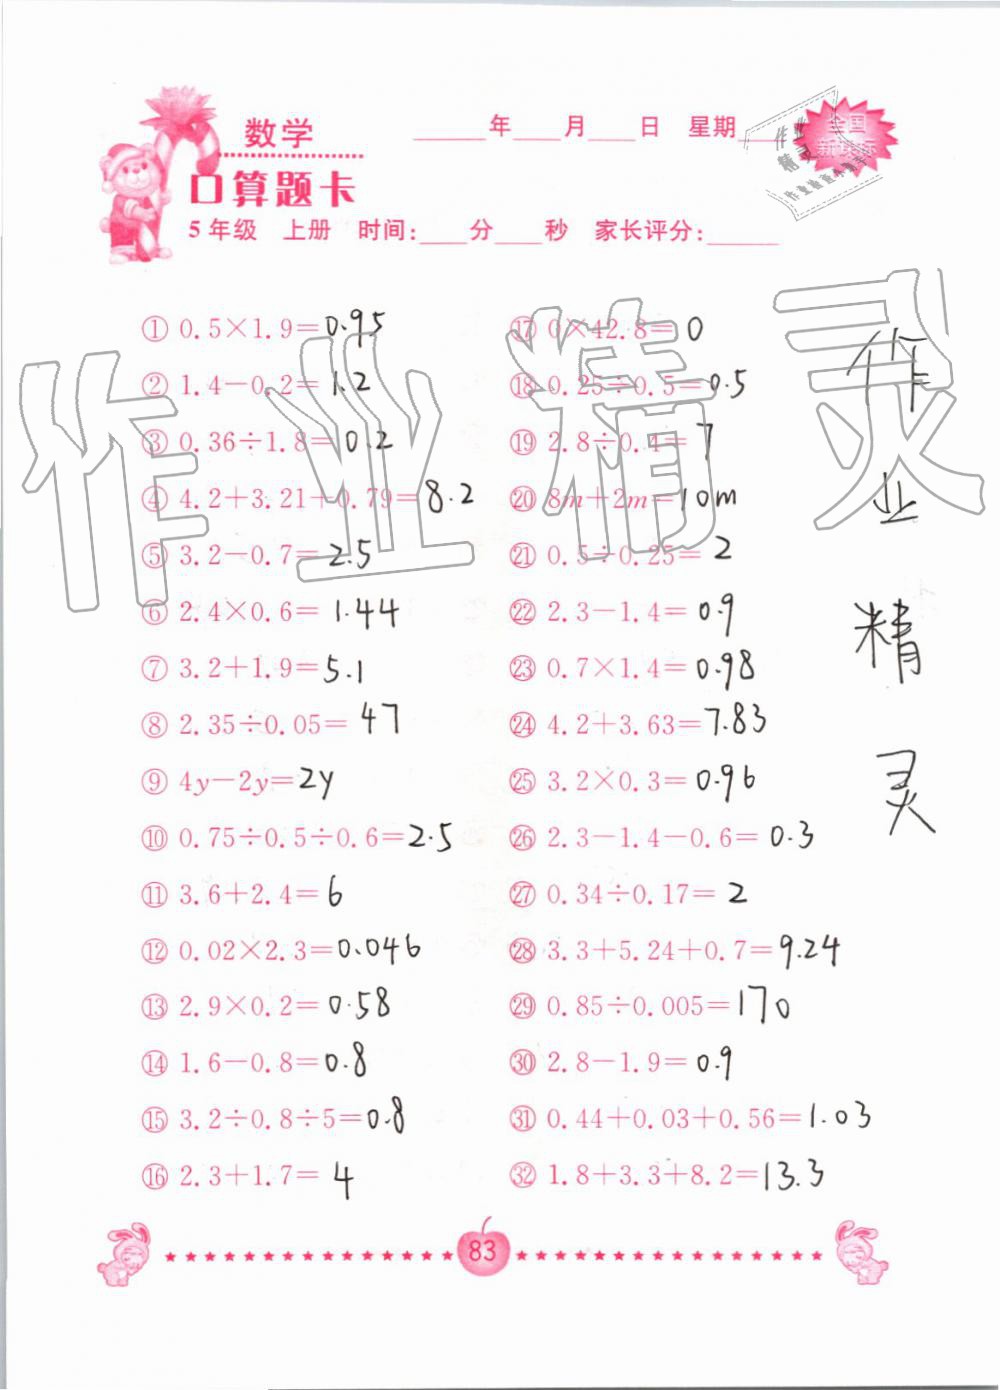 数学
____年____月____日 星期____
全国
新课标
作业
精灵
口算题卡
5年级 上册 时间:____分____秒 家长评分:______
① 0.5×1.9=0.95
② 1.4-0.2=1.2
③ 0.36÷1.8=0.2
④ 4.2+3.21+0.79=8.2
⑤ 3.2-0.7=2.5
⑥ 2.4×0.6=1.44
⑦ 3.2+1.9=5.1
⑧ 2.35÷0.05=47
⑨ 4y-2y=2y
⑩ 0.75÷0.5÷0.6=2.5
⑪ 3.6+2.4=6
⑫ 0.02×2.3=0.046
⑬ 2.9×0.2=0.58
⑭ 1.6-0.8=0.8
⑮ 3.2÷0.8÷5=0.8
⑯ 2.3+1.7=4
⑰ 0×42.8=0
⑱ 0.25÷0.5=0.5
⑲ 2.8÷0.4=7
⑳ 8m+2m=10m
㉑ 0.5÷0.25=2
㉒ 2.3-1.4=0.9
㉓ 0.7×1.4=0.98
㉔ 4.2+3.63=7.83
㉕ 3.2×0.3=0.96
㉖ 2.3-1.4-0.6=0.3
㉗ 0.34÷0.17=2
㉘ 3.3+5.24+0.7=9.24
㉙ 0.85÷0.005=170
㉚ 2.8-1.9=0.9
㉛ 0.44+0.03+0.56=1.03
㉜ 1.8+3.3+8.2=13.3
作业精灵
作
业
精
灵
83